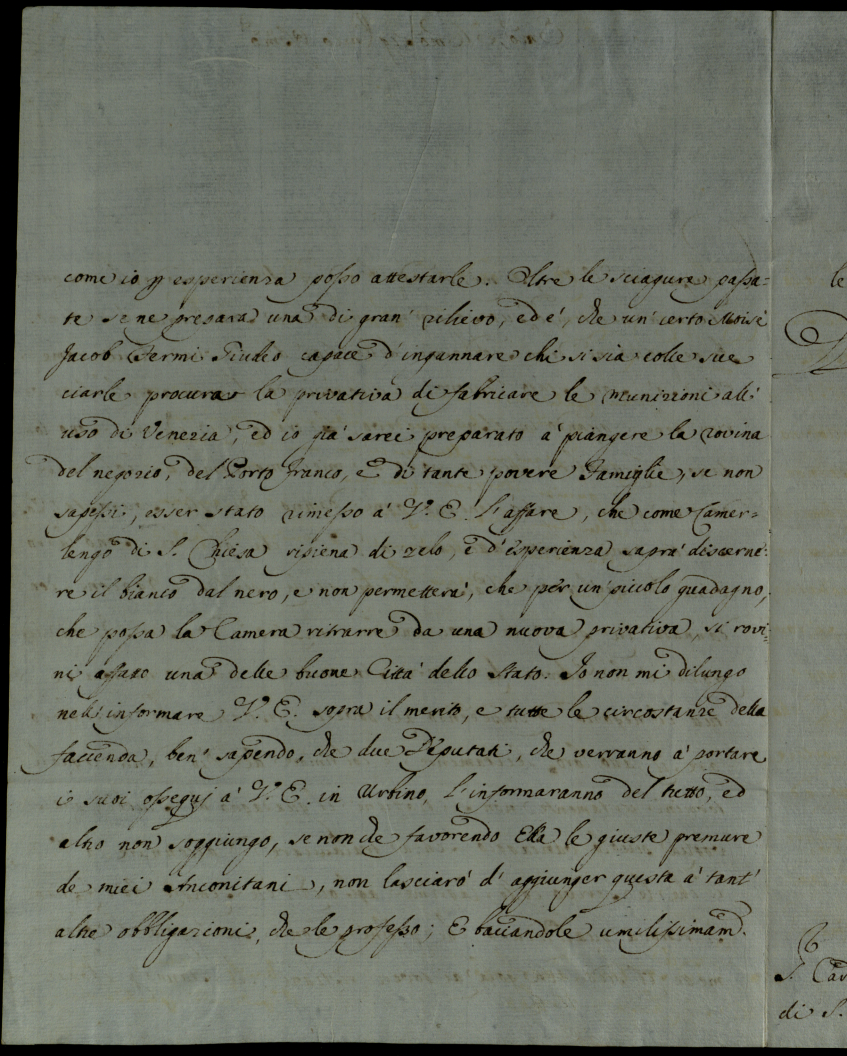 come io p esperienza posso attestarle. Oltre le sciagure passa=
te se ne prepara una di gran' rilievo, ed e', che un' certo Moise
Jacob Fermi Giudeo capace d'ingannare chi si sia colle sue
ciarle procura la privativa di fabricare le munizioni all'
uso di Venezia, ed io già sarei preparato a' piangere la rovina
del negozio, del Porto franco, e di tante povere Famiglie, se non
sapessi, esser stato rimesso à V. E. l'affare, che come Camer=
lengo di S. Chiesa ripiena di zelo, e d'esperienza saprà discerne=
re il bianco dal nero, e non permetterà, che per un' piccolo guadagno,
che possa la Camera ritrarre da una nuova privativa, si rovi=
ni affatto una delle buone Città dello Stato. Io non mi dilungo
nell'informare V. E. sopra il merito, e tutte le circostanze della
facenda, ben' sapendo, che due Deputati, che verranno a' portare
i suoi ossequj à V. E. in Urbino, l'informaranno del tutto, ed
altro non soggiungo, se non che favorendo Ella le giuste premure
de miei Anconitani, non lasciarò d' aggiunger questa à tant'
altre obbligazioni, che le professo; E baciandole umilissimam.
le
S. Car
di S.